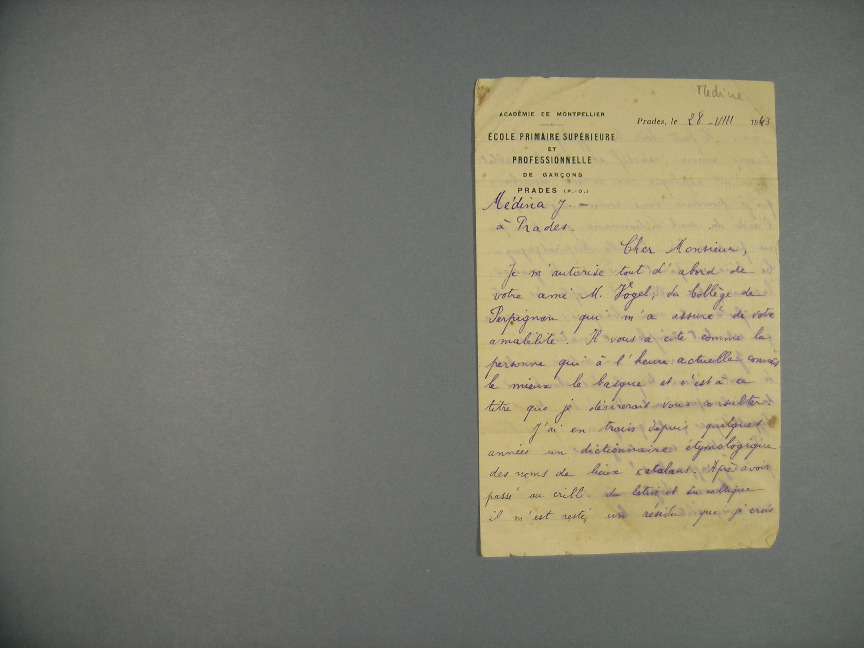 Medina
ACADÉMIE DE MONTPELLIER
ÉCOLE PRIMAIRE SUPÉRIEURE
ET
PROFESSIONNELLE
DE GARÇONS
PRADES (P.-O.)
Prades, le 28 -VIII 1943
Médina J. -
à Prades.
Cher Monsieur,
Je m'autorise tout d'abord de
votre ami M. Vogel, du Collège de
Perpignan qui m'a assuré de votre
amabilité. Il vous a cité comme la
personne qui à l'heure actuelle connaît
le mieux le basque et c'est à ce
titre que je désirerais vous consulter.
J'ai en train depuis quelques
années un dictionnaire étymologique
des noms de lieux catalans. Après avoir
passé au crible du latin et du celtique
il m'est resté un résidu que je crois